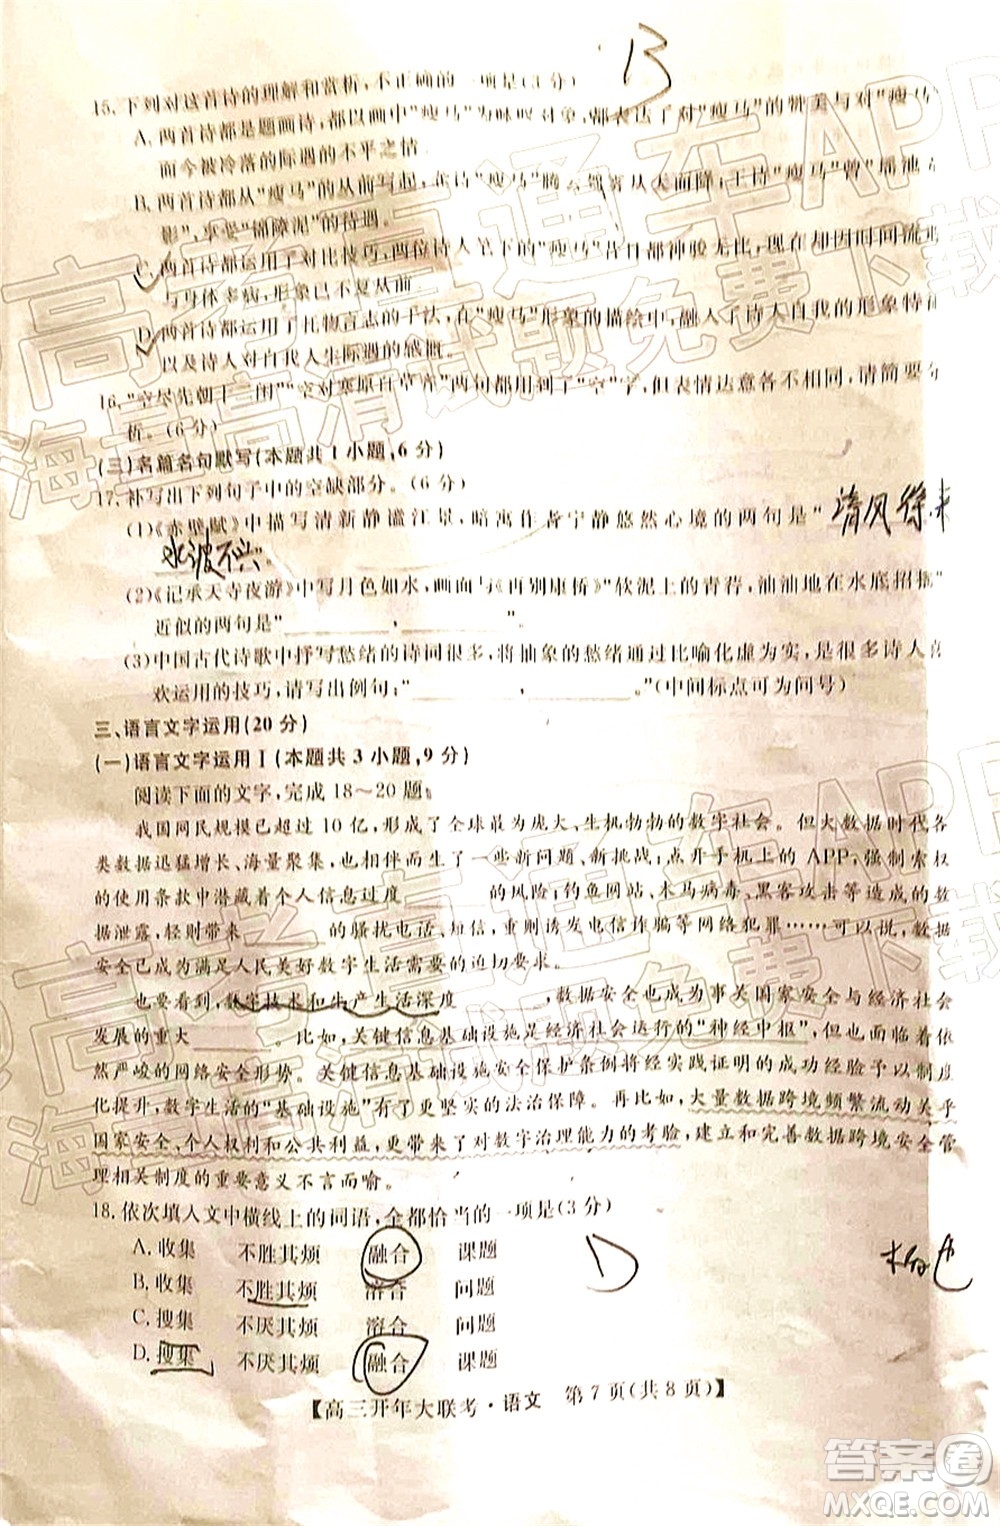 B
15.下列对这首诗的理解和赏析,不正确的一项是(3分)
A.两首诗都是题画诗,都以画中"瘦马"为吟咏对象,都表达了对"瘦马"的赞美与对"瘦马"
而今被冷落的际遇的不平之情
B.两首诗都从"瘦马"的从前写起,
"瘦马"
天而降;王诗"瘦马"曾"摇池
影",享受"锦障泥"的待遇。
C.两首诗都运用了对比技巧,两位诗人笔下的"瘦马"昔日都神骏无比,现在却因时间流逝
与身体多病,形象已不复从前
D.两首诗都运用了托物言志的手法,在"瘦马"形象的描绘中,融入了诗人自我的形象特征
以及诗人对自我人生际遇的感慨。
16."空尽先朝十二闲""空对寒原白草
"两句都用到了"空"字,但表情达意各不相同,请简要分
析。(6分)
(三)名篇名句默写(本题共1小题,6分)
17.补写出下列句子中的空缺部分。(6分)
(1)《赤壁赋》中描写清新静谧江景,暗寓作者宁静悠然心境的两句是"清风徐来
水波不兴"。
(2)《记承天寺夜游》中写月色如水,画面与《再别康桥》"软泥上的青荇,油油地在水底招摇"
近似的两句是"________,________"。
(3)中国古代诗歌中抒写愁绪的诗词很多,将抽象的愁绪用比喻化虚为实,是很多诗人喜
欢运用的技巧,请写出例句:"________,________。"(中间标点可为问号)
三、语言文字运用(20分)
(一)语言文字运用Ⅰ(本题共3小题,9分)
阅读下面的文字,完成18~20题。
我国网民规模已超过10亿,形成了全球最为庞大、生机勃勃的数字社会。但大数据时代各
类数据迅猛增长、海量聚集,也带来了一些新问题、新挑战:点开手机上的APP,强制索权
的使用条款中潜藏着个人信息过度________的风险;钓鱼网站、木马病毒、黑客攻击造成数
据泄露,轻则带来________的骚扰电话,重则诱发电信诈骗等网络犯罪……可以说,数
据安全已成为满足人民美好数字生活需要的迫切要求。
也要看到,数字技术和生产生活深度________,数据安全也成为事关国家安全与经济社会
发展的重大________。比如,关键信息基础设施是经济社会运行的"神经中枢",面临着依
然严峻的网络安全形势。关键信息基础设施安全保护条例将经实践证明的成功经验制度
化提升,数字生活的"基础设施"有了更坚实的法治保障。再比如,大量数据跨境频繁流动关乎
国家安全、个人权利和公共利益,更带来了对数字治理能力的考验,建立和完善数据跨境安全管
理相关制度的重要意义不言而喻。
18.依次填入文中横线上的词语,全都恰当的一项是(3分)
A.收集 不胜其烦 融合 课题
B.收集 不胜其烦 溶合 问题
C.搜集 不厌其烦 溶合 问题
D.搜集 不厌其烦 融合 课题
D
【高三开年大联考·语文 第7页(共8页)】
高考直通车APP
海量高清试题免费下载
高考直通车APP
海量高清试题免费下载
答案圈
MXQE.COM